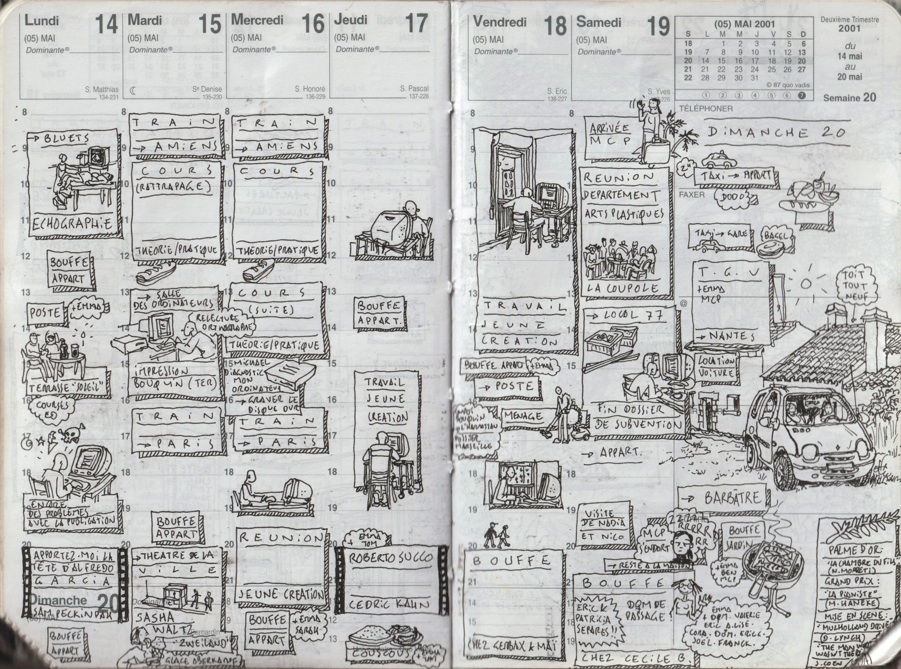 Lundi 14
(05) MAI
Dominante®
S. Matthias
134-231
8
→ BLUETS
9
10
11
ECHOGRAPHIE
12
BOUFFE
APPART
13
POSTE
+EMMA
14
15
TERRASSE "SOLEIL"
16
COURSES
ED
17
18
ENCORE
DES PROBLÈMES
AVEC LA PUBLICATION
19
20
APPORTEZ-MOI LA
TÊTE D'ALFREDO
GARCIA
SAM PECKINPAH
Dimanche 20
BOUFFE
APPART
Mardi 15
(05) MAI
Dominante®
Se Denise
135-230
8
TRAIN
→ AMIENS
COURS
(RATTRAPAGE)
THEORIE/PRATIQUE
→ SALLE
DES ORDINATEURS
RELECTURE
IMPRESSION
BOUQUIN (TER)
TRAIN
→ PARIS
BOUFFE
APPART
→THEATRE DE LA
VILLE
SASHA
WALTZ
"ZWEILAND"
Mercredi 16
(05) MAI
Dominante®
S. Honoré
136-229
8
TRAIN
→ AMIENS
COURS
THEORIE/PRATIQUE
COURS
(SUITE)
THEORIE/PRATIQUE
MICHAEL
DIAGNOSTIQUE
MON
ORDINATEUR
→ GRAVER LE
DISQUE DUR
TRAIN
→ PARIS
REUNION
JEUNE CREATION
BOUFFE
APPART
+EMMA
SARAH
Jeudi 17
(05) MAI
Dominante®
S. Pascal
137-228
8
9
10
11
12
13
BOUFFE
APPART.
14
15
TRAVAIL
JEUNE
CREATION
16
17
18
19
ROBERTO SUCCO
CEDRIC KAHN
COUSCOUS
Vendredi 18
(05) MAI
Dominante®
S. Eric
138-227
8
TRAVAIL
JEUNE
CREATION
BOUFFE APPART
+EMMA
→ POSTE
MENAGE
BOUFFE
Samedi 19
(05) MAI
Dominante®
S. Yves
8
ARRIVÉE
MCP
REUNION
DEPARTEMENT
ARTS PLASTIQUES
LA COUPOLE
→ LOCAL 77
FIN DOSSIER
DE SUBVENTION
→ APPART.
VISITE
DE NADIA
ET NICO
MCP
S'ENDORT
→ RESTE À LA MAISON
BOUFFE
ERIC &
PATRICIA
SEPARES!!
DOM DE
PASSAGE!
CHEZ CECILE B.
(05) MAI 2001
S L M M J V S D
18 1 2 3 4 5 6
19 7 8 9 10 11 12 13
20 14 15 16 17 18 19 20
21 21 22 23 24 25 26 27
22 28 29 30 31
© 87 quo vadis
Deuxième Trimestre
2001
du
14 mai
au
20 mai
Semaine 20
TÉLÉPHONER
DIMANCHE 20
TAXI → APPART
FAXER
DODO
TAXI → GARE
BAGEL
T.G.V
+EMMA
MCP
→ NANTES
@
TOIT
TOUT
NEUF
LOCATION
VOITURE
→ BARBÂTRE
BOUFFE
JARDIN
+EMMA
BEN
MCP
PALME D'OR:
"LA CHAMBRE DU FILS"
(N. MORETTI)
GRAND PRIX:
"LA PIANISTE"
M. HANEKE
MISE EN SCENE:
"MULHOLLAND DRIVE"
(D. LYNCH)
"THE MAN WHO
WASN'T THERE"
J. COEN